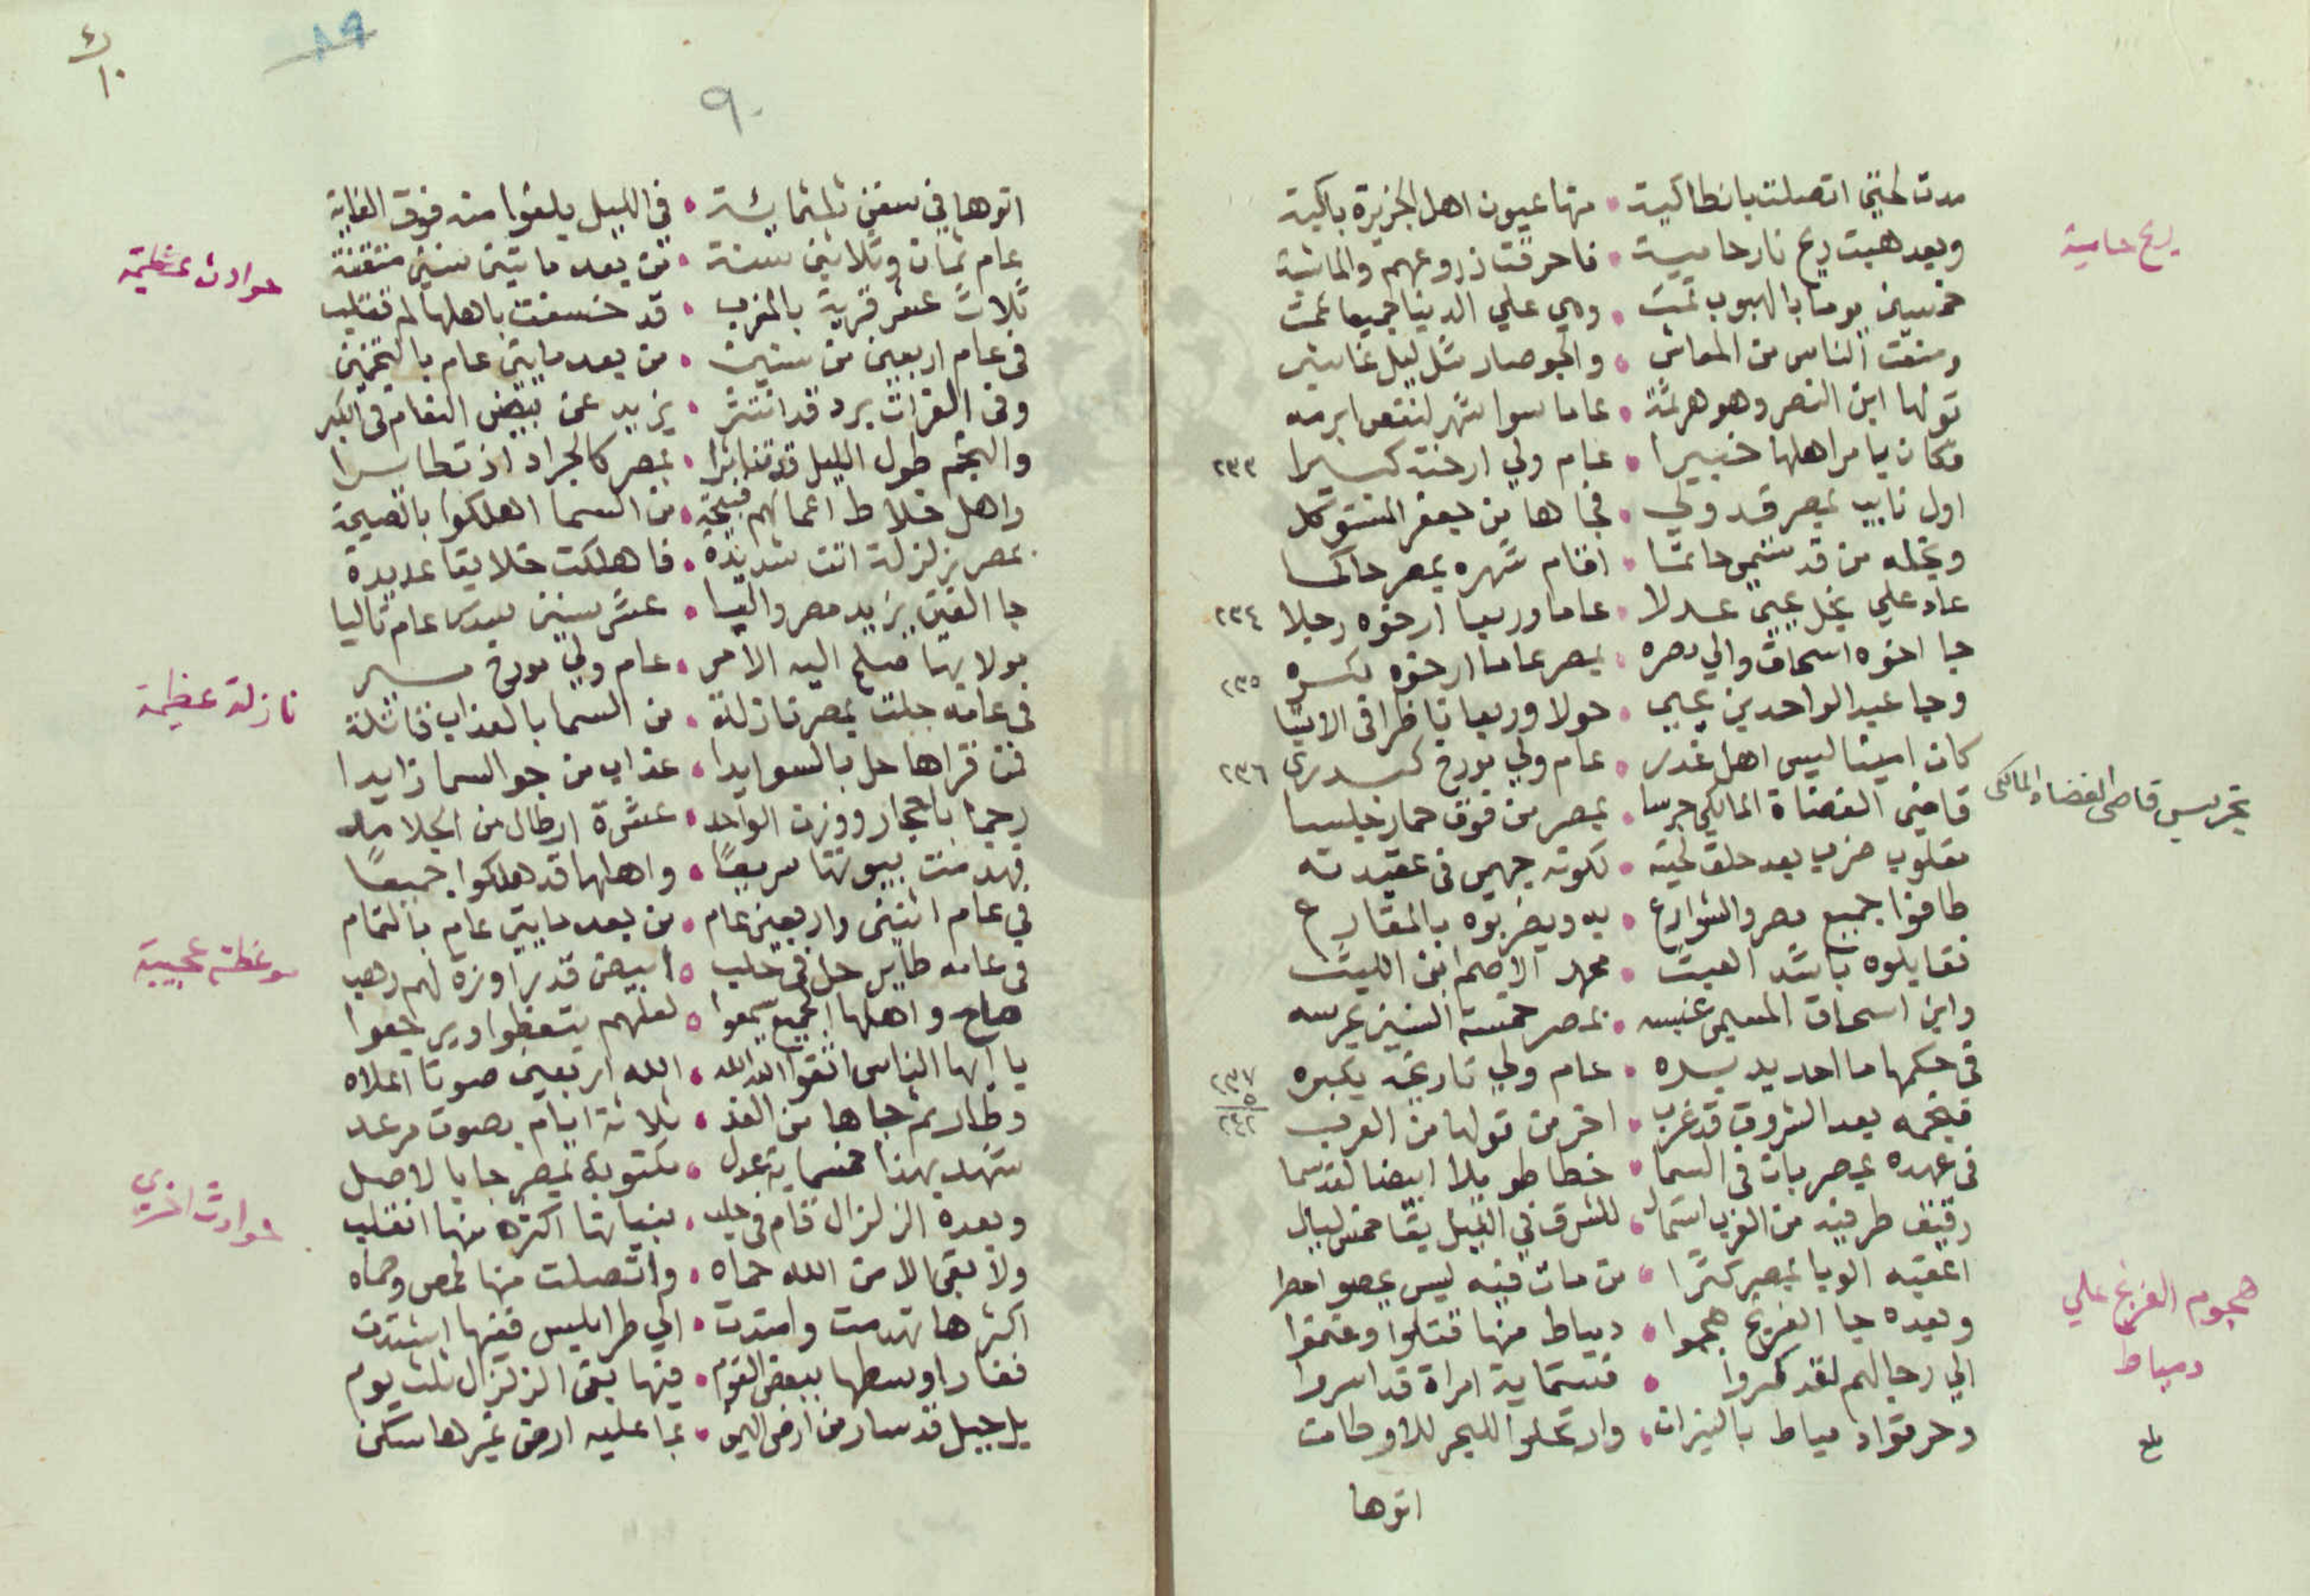 مدت لحتي اتصلت بانطاكية • منها عيون اهل الجزيرة باكية
وبعد هبت ريح نار حامية • فاحرقت زروعهم والماشية
ريح حامية
خمسين يوما بالهبوب تمت • وهي علي الدنيا جميعا عمت
ومنعت الناس من المعاش • والجو صار مثل ليل غاشي
تولها ابن النصر وهو هرثمة • عاما سوا شهر لنقص ابرمه
وكان يامر اهلها خبيرا • عام ولي ارخته كبيرا ٢٣٣
اول نايب بمصر قد ولي • فجاها من جعفر المتوكل
ونجله من قد سمي حاتما • اقام شهره بمصر حاكما
عاد علي نجل يحيي عدلا • عاما وربعا ارخوه رجلا ٢٣٤
جا اخوه اسحاق والي مصره • بمصر عاما ارخوه بكسره ٢٣٥
وجا عبد الواحد بن يحيي • حولا وربعا ناظرا في الاشيا
كان امينا ليس اهل غدر • عام ولي مورخ كبدري ٢٣٦
تجريس قاضي القضاة المالكي
قاضي القضاة المالكي جرسا • بمصر من فوق حمار جلسا
مقلوب ضرب بعد حلق لحيته • لكونه جهمي في عقيدته
طافوا جميع مصر والشوارع • به ويضربوه بالمقارع
نقابلوه باشد العبث • محمد الاصم ابن الليث
وابن اسحاق المسمي عنبسه • بمصر خمسة السنين عرسه
في حكمها ما احد يدبره • عام ولي تاريخه يكبره ٢٣٧
فنجمه بعد الشروق قد غرب • اخر من تولها من العرب
في عهده بمصر بان في السما • خطا طويلا ابيضا لقد سما
رقيق طرفيه من الغرب استمال • للشرق في الليل بقا خمس ليال
اعقبه الوبا بمصر كثرا • من مات فيه ليس يحصوا حصرا
هجوم الفرنج علي
دمياط
وبعده جا الفرنج هجموا • دمياط منها قتلوا وغنموا
الي رجالهم لقد كسروا • فستماية امراة قد اسروا
وحرقوا دمياط بالنيران • وارتحلوا للبحر للاوطان
بلغ
اتوها
٨٩
٩٠
اتوها في سفن ثلثمائة • في الليل بلغوا منه فوق الغاية
عام ثمان وثلاثين سنة • من بعد مايتين سنين متقنة
حوادث عظيمة
ثلاث عشر قرية بالمغرب • قد خسفت باهلها لم تقلب
في عام اربعين من سنين • من بعد مايتين عام بالتخمين
وفي الفرات برد قد انتثر • يزيد عن بيض النعام في الكبر
والنجم طول الليل قد تناثرا • بمصر كالجراد اذ تطايرا
واهل خلاط اعمالهم قبيحة • من السما اهلكوا بالصيحة
بمصر زلزلة اتت شديدة • فاهلكت خلايقا عديدة
جا الفتي يزيد مصر واليا • عشر سنين سدس عام تاليا
بولايها صلح اليه الامر • عام ولي مورخ
نازلة عظيمة
في عامه جلت بمصر نازلة • من السما بالعذاب قاتلة
فمن قراها حل بالسوايدا • عذاب من جو السما زايدا
رجما باحجار ووزن الواحد • عشرة ارطال من الجلامد
فهدمت بيوتها سريعًا • واهلها قد هلكوا جميعًا
في عام اثنين واربعين عام • من بعد مايتين عام بالتمام
موعظة عجيبة
في عامه طاير حل في حلب • ابيض قدر اوزه لهم رهب
صاح واهلها الجميع سمعوا • لعلهم يتعظوا ويرجعوا
يا ايها الناس اتقوا الله الله • الله اربعين صوتا اعلاه
وطار ثم جاها من الغد • ثلاثة ايام بصوت مرعد
شهد بهذا خمسماية عدل • مكتوبة بمصر جا بالاصل
حوادث اخري
وبعده الزلزال قام في حلب • بنيانها اكثره منها انقلب
ولا بقي الا من الله حماه • واتصلت منها لحمص وحماه
اكثرها تهدمت وامتدت • الي طرابلس ففيها اشتدت
فغار اوسطها ببعض القوم • فيها بقي الزلزال ثلث يوم
بل جبل قد سار من ارض اليمن • بما عليه ارض غيرها سكن